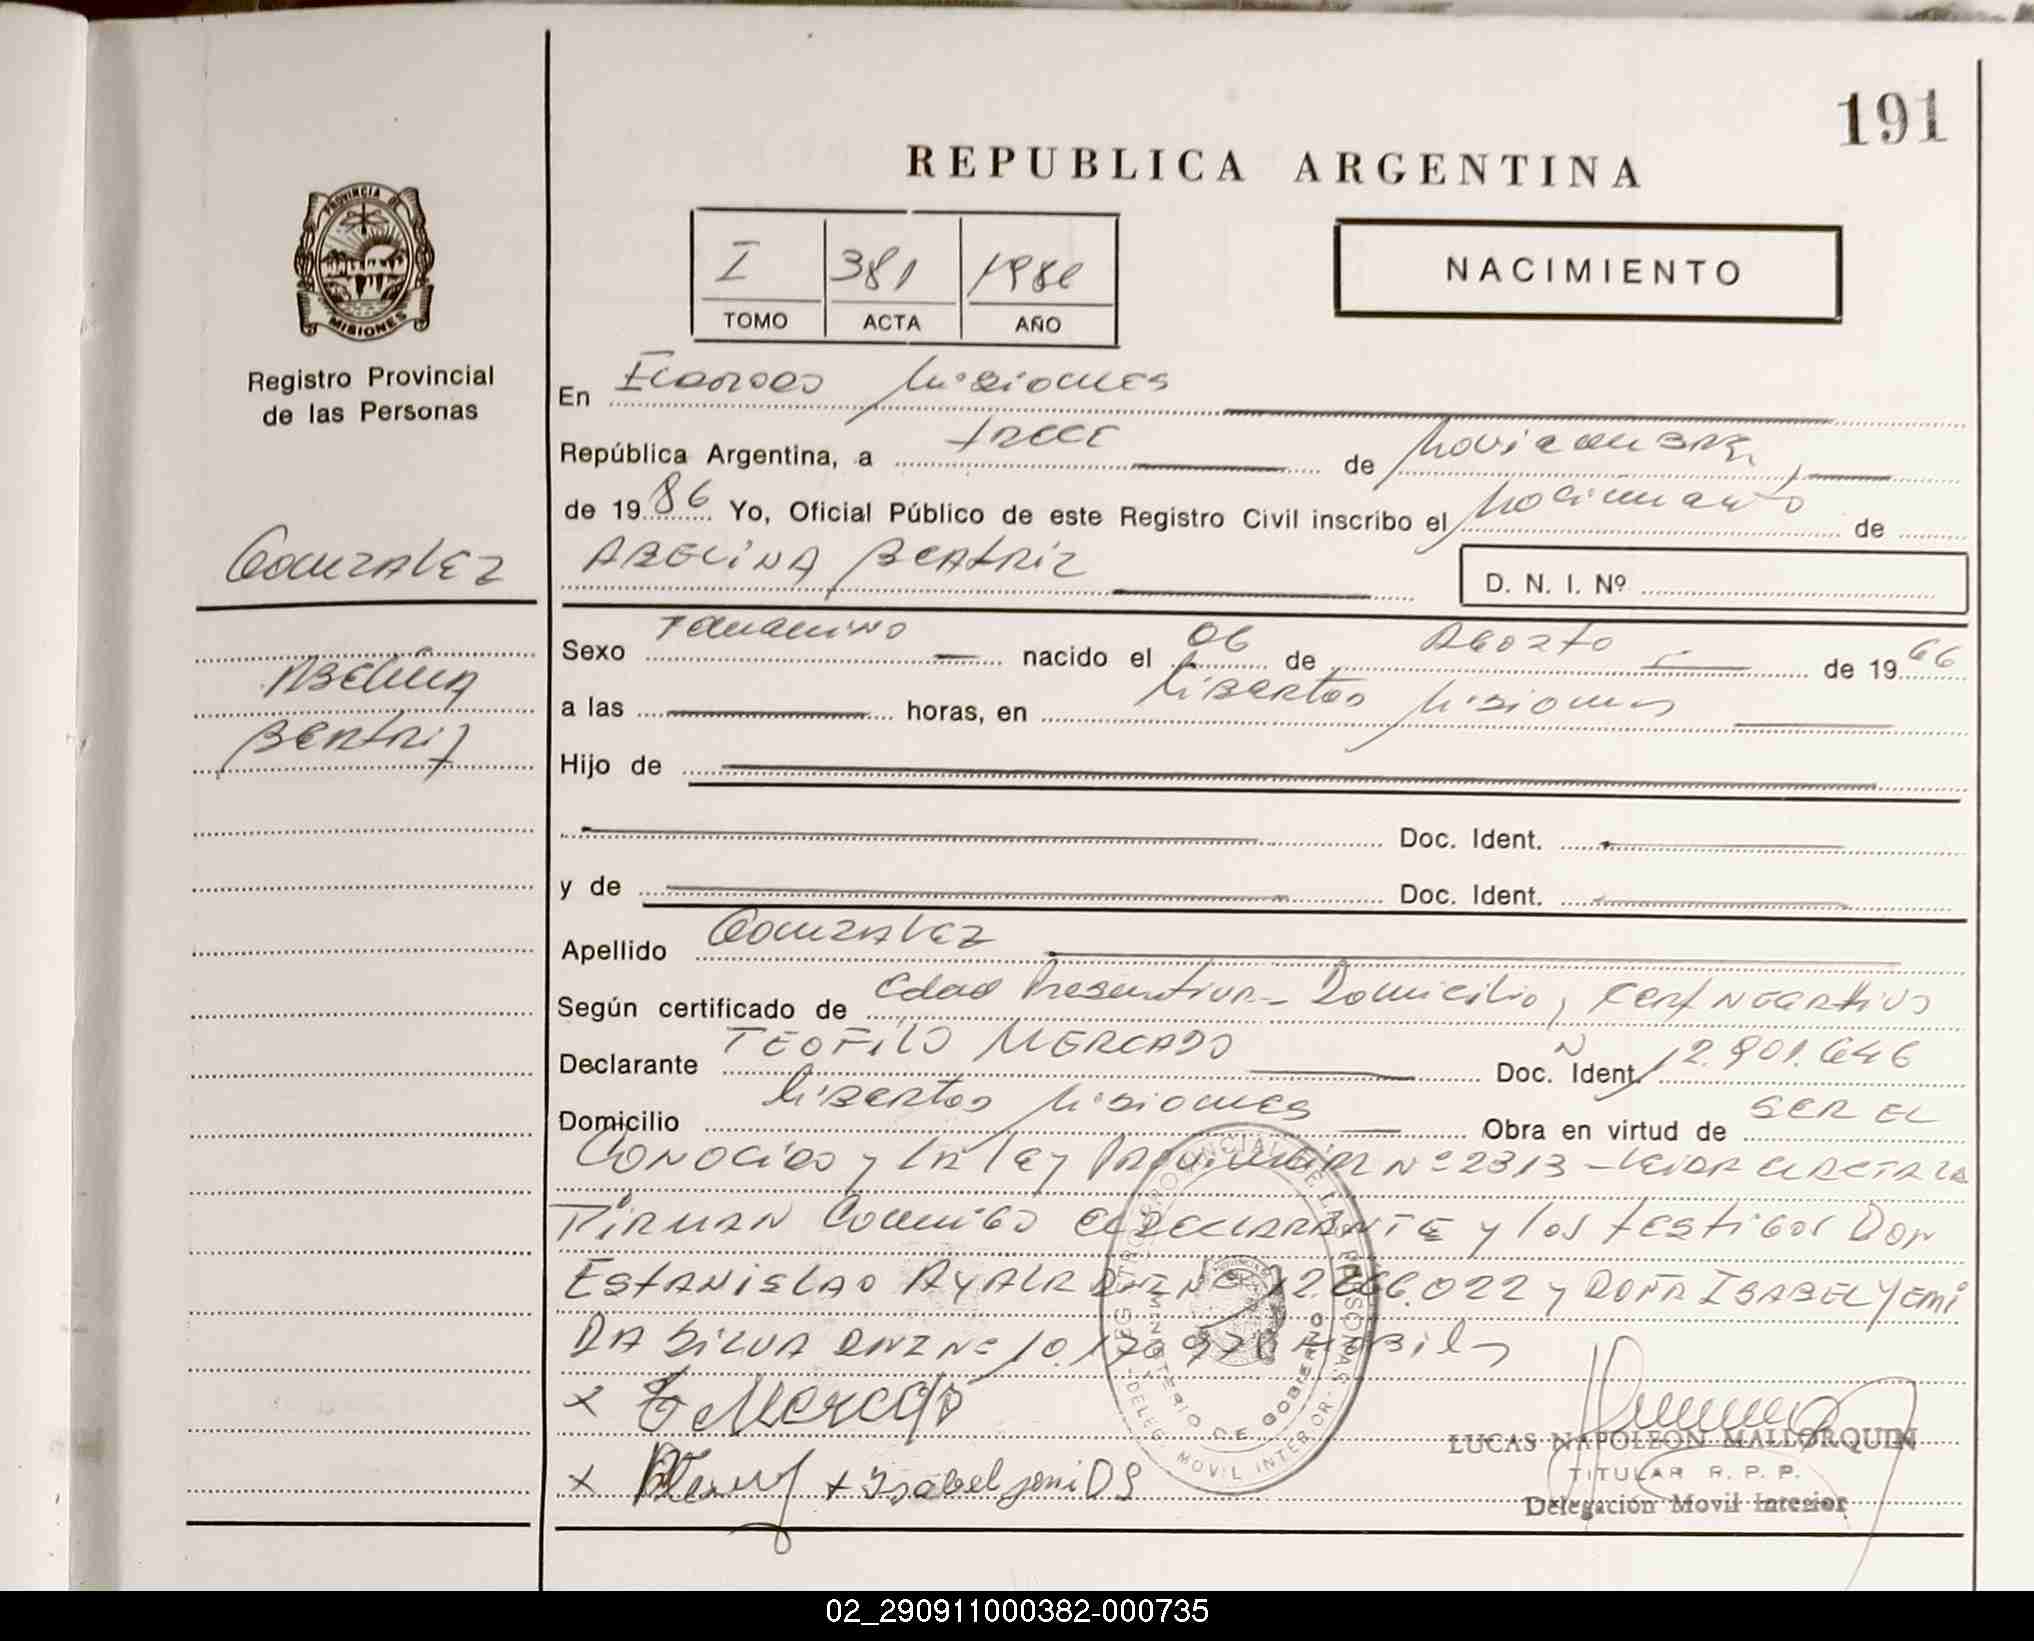 191
REPUBLICA ARGENTINA
PROVINCIA DE
MISIONES
Registro Provincial
de las Personas
I 381 1986
TOMO ACTA AÑO
NACIMIENTO
En Eldorado Misiones
República Argentina, a trece de Noviembre,
de 1986 Yo, Oficial Público de este Registro Civil inscribo el Nacimiento de
GONZALEZ
ABELINA BEATRIZ
D. N. I. Nº
Sexo Femenino nacido el 06 de Agosto de 1966
Abelina
a las horas, en Libertad Misiones
Beatriz
Hijo de
Doc. Ident.
y de Doc. Ident.
Apellido GONZALEZ
Según certificado de Edad Presuntiva - Domicilio, Cert Negativo
Declarante TEOFILO MERCADO Doc. Ident. N 12.901.646
Domicilio Libertad Misiones Obra en virtud de SER EL
CONOCIDO y LA LEY Nº 2313 -
FIRMAN Conmigo EL DECLARANTE y los testigos Don
ESTANISLAO AYALA DNI Nº 12.266.022 y DOÑA ISABEL YEMI
DA SILVA DNI Nº 10.170.970
x T Mercado
x
+ Isabel yemi DS
REGISTRO PROVINCIAL DE LAS PERSONAS
MINISTERIO DE GOBIERNO
- DELEG. MOVIL INTERIOR -
LUCAS NAPOLEON MALLORQUIN
TITULAR R. P. P.
Delegación Movil Interior
02_290911000382-000735